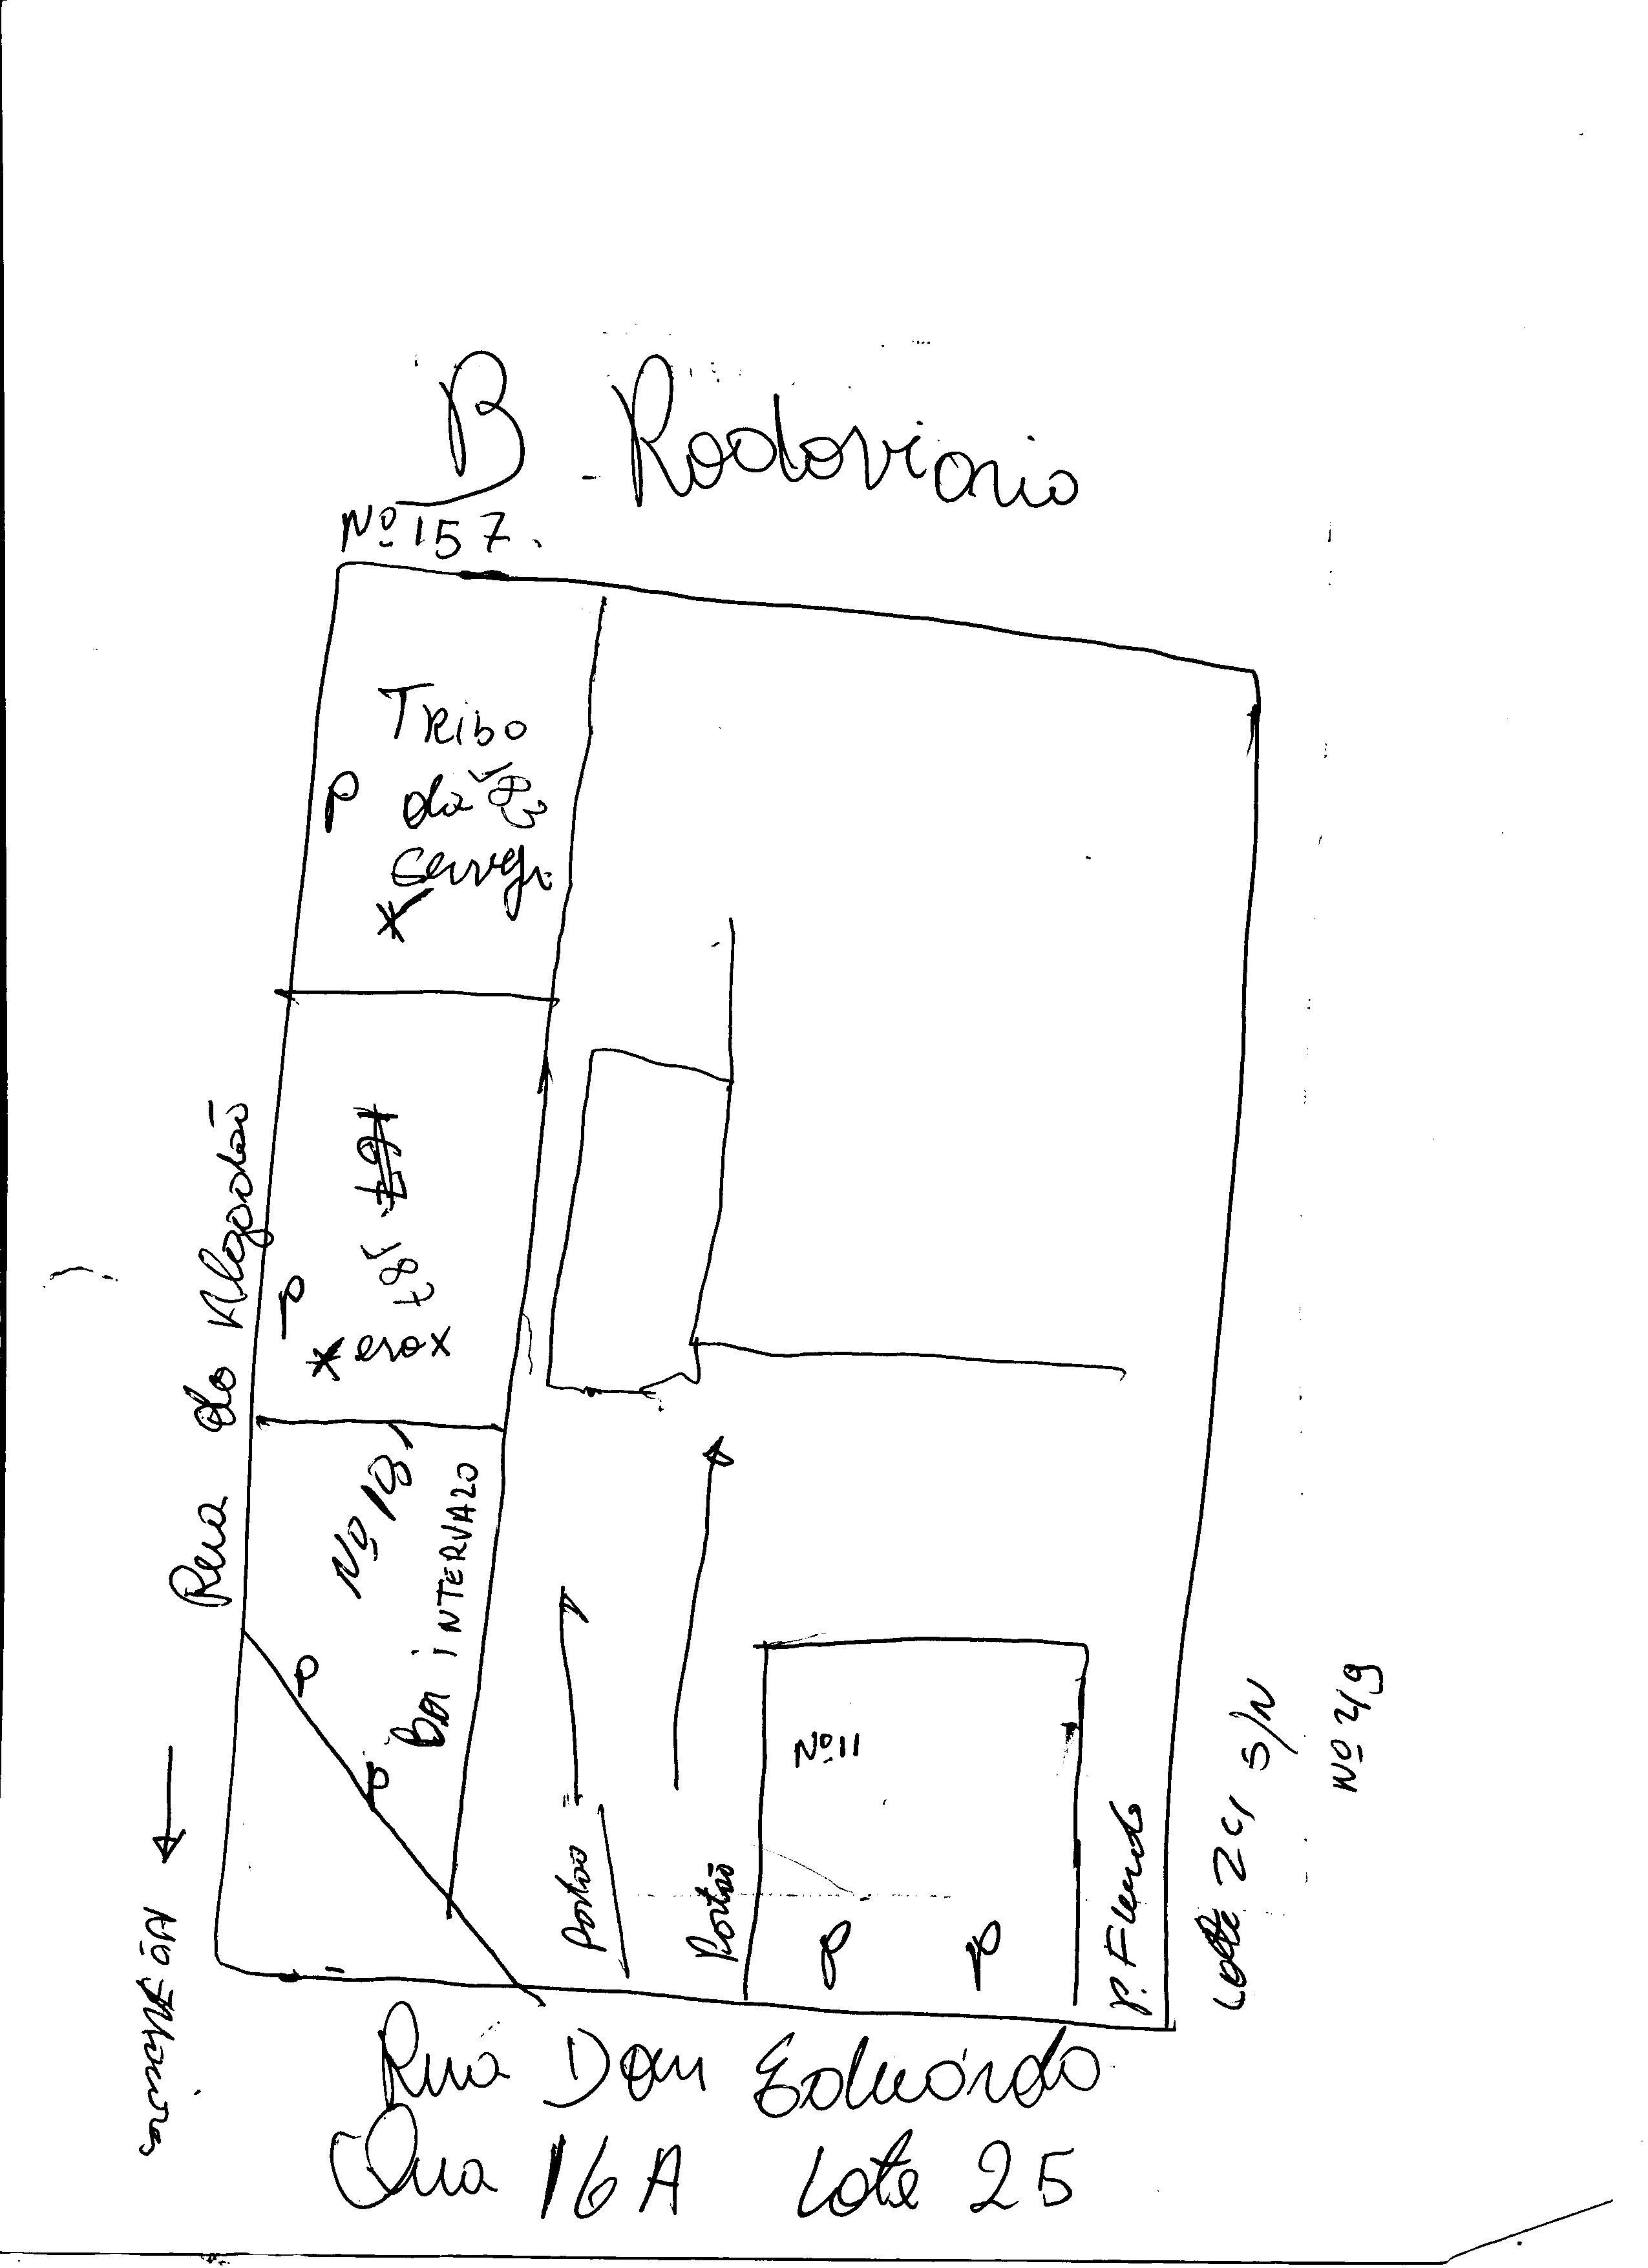 B Rodoviario
Nº 157.
Tribo
da 183
P
*
Rua do Algodão
187
P
*erox
Nº 181
BAR INTERVALO
P
P
Portão
Portão
Nº 11
P
P. Fundo
Lote 24 S/N
Nº 49
Rua Dom Eduardo
Qua 16A Lote 25